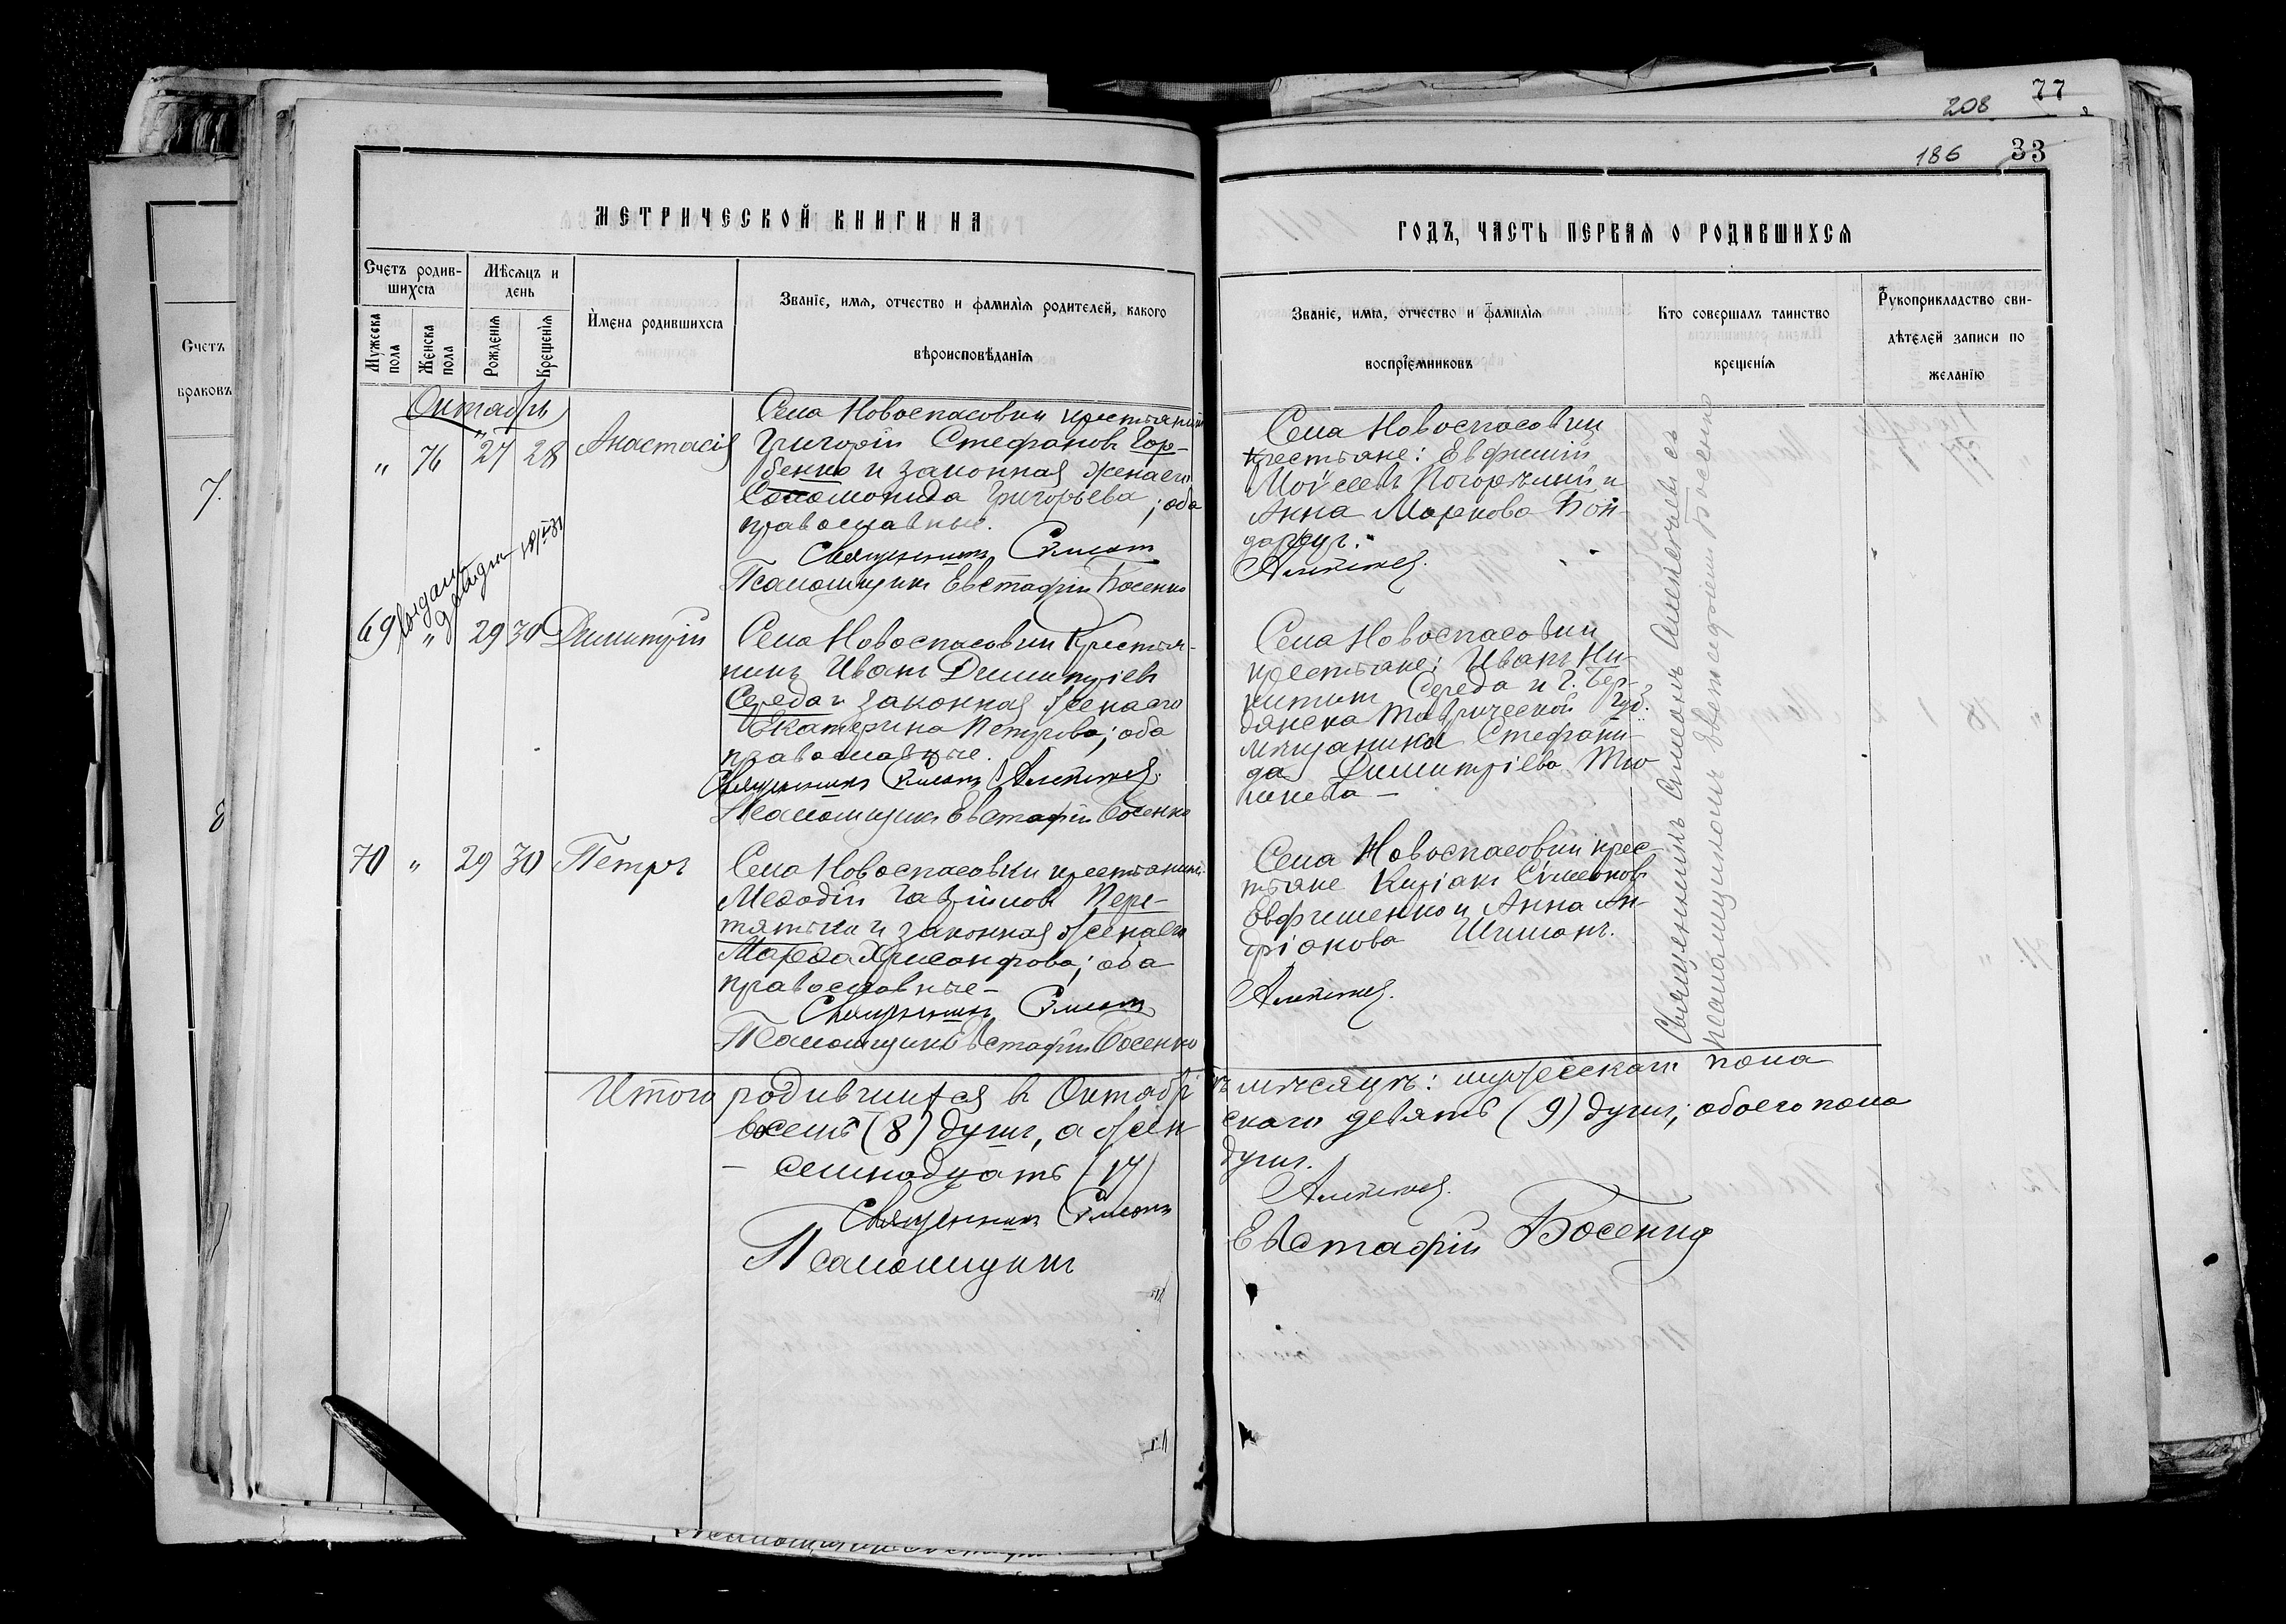 77
208
186 33
МЕТРИЧЕСКОЙ КНИГИ НА
ГОДЪ, ЧАСТЬ ПЕРВАЯ О РОДИВШИХСЯ
Счетъ
браковъ
7.
8
Счетъ родив-
шихся
Мѣсяцъ и
день
Мужеска
пола
Женска
пола
Рожденія
Крещенія
Имена родившихся
Званіе, имя, отчество и фамилія родителей, какого
вѣроисповѣданія
Званіе, имя, отчество и фамилія
воспріемниковъ
Кто совершалъ таинство
крещенія
Рукоприкладство сви-
дѣтелей записи по
желанію
Октябрь
" 76 27 28 Анастасія
Села Новоспасовки крестьянинъ
Григорій Стефановъ Гор-
бенко и законная жена его
Соломонида Григорьева; оба
православные.
Священникъ Симеонъ
Псаломщикъ Евстафій Босенко
Села Новоспасовки
крестьяне: Евфимій
Моѵсеевъ Погорѣлый и
Анна Маркова Бон-
дарь.
69 " 29 30 Димитрій
Села Новоспасовки крестья-
нинъ Иванъ Димитріевъ
Середа и законная жена его
Екатерина Петрова; оба
православные.
Священникъ Симеонъ
Псаломщикъ Евстафій Босенко
Села Новоспасовки
крестьяне: Иванъ Ни-
китинъ Середа и г. Бер-
дянска Таврической Губ.
мѣщанка Стефани-
да Димитріева Тю-
нева
70 " 29 30 Петръ
Села Новоспасовки крестьянинъ
Меѳодій Гавріиловъ Пере-
тятько и законная жена его
Марѳа Хрисанфова; оба
православные
Священникъ Симеонъ
Псаломщикъ Евстафій Босенко
Села Новоспасовки крес-
тьяне Киріакъ Сѵмеоновъ
Евфименко и Анна Ан-
дріанова Шиманъ.
Священникъ Симеонъ
Псаломщикомъ Евстафіемъ Босенко
Итого родившихся въ Октябрѣ мѣсяцѣ: мужескаго пола
восемь (8) душъ, а жен-скаго девять (9) душъ; обоего пола
– семнадцать (17) душъ.
Священникъ Симеонъ
Псаломщикъ Евстафій Босенко